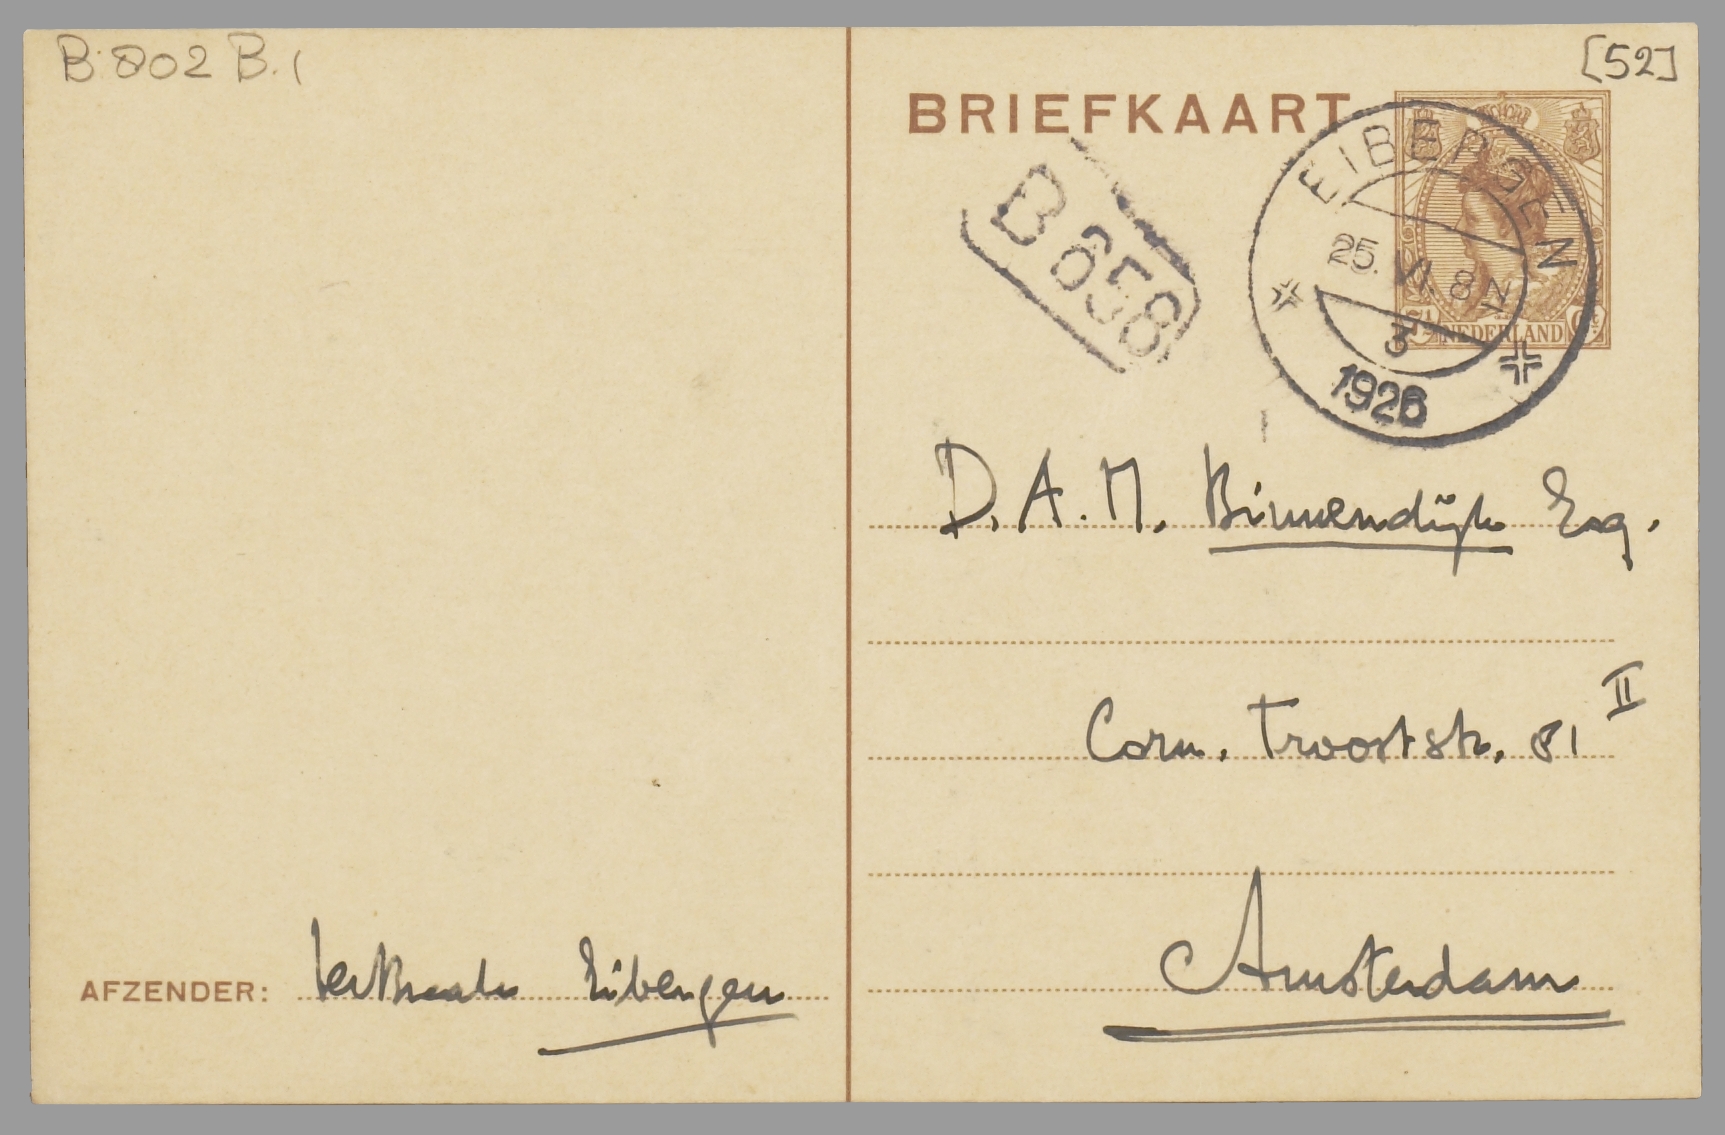 B 802 B.1
[52]
BRIEFKAART
EIBERGEN
25. VI. 8 N
3
1926
B 658
7½ NEDERLAND
D. A. M. Binnendijk Esq.
Corn. Trooststr. 81 II
Amsterdam
AFZENDER: Eibergen